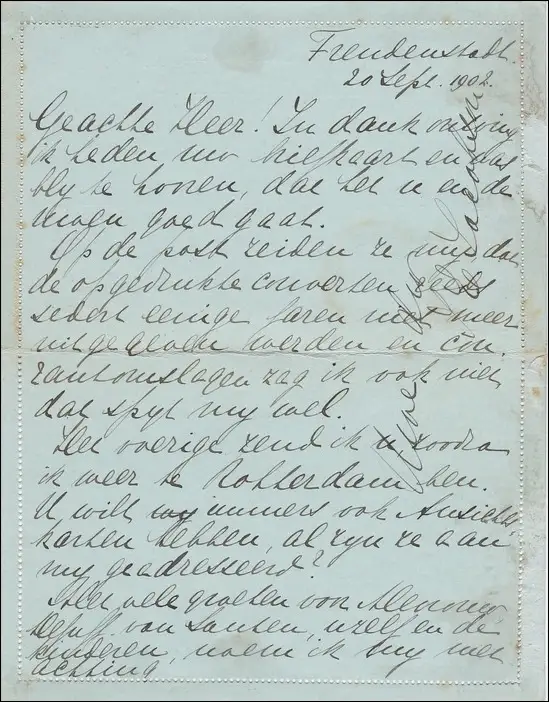 Freudenstadt.
20 Sept. 1902.
Geachte Heer! In dank ontving
ik heden uw briefkaart en was
bly te hooren, dat het u en de
uwen goed gaat.
Op de post zeiden ze my dat
de opgedrukte converten reeds
sedert eenige jaren niet meer
uitgegeven werden en cou-
rantomslagen zag ik ook niet
dat spyt my wel.
Het overige zend ik u, zoodra
ik weer te Rotterdam ben.
U wilt immers ook Ansichts
karten hebben, al zyn ze aan
my geadresseerd?
Met vele groeten voor Mevrouw
van Sansen, uzelf en de
kinderen, noem ik my met
achting